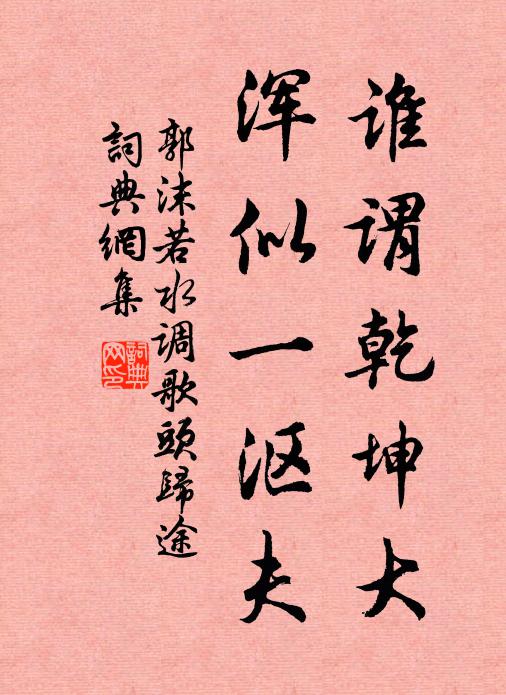 谁谓乾坤大
浑似一沤夫
郭沫若水调歌頭歸途
詞典網集
詞典网印